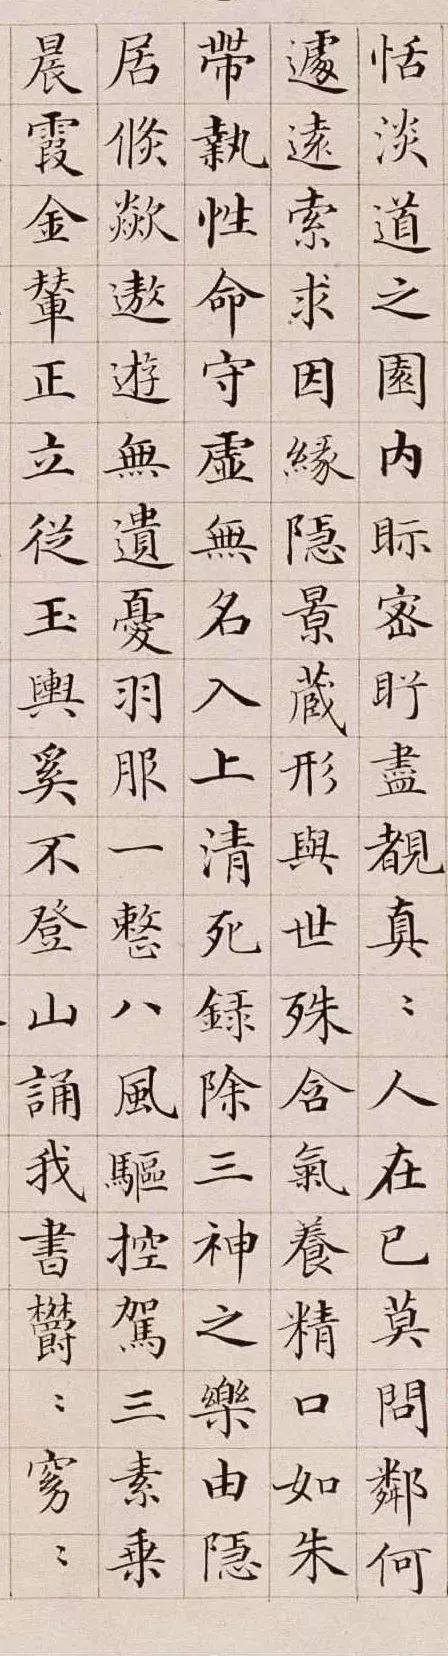 恬淡道之園内眎密盻盡覩真〻人在己莫問鄰何
遽遠索求因緣隱景蔵形與世殊含氣養精口如朱
帶執性命守虛無名入上清死録除三神之樂由隱
居倐歘遨遊無遺憂羽服一整八風驅控駕三素乗
晨霞金輦正立從玉輿奚不登山誦我書欝〻窈〻